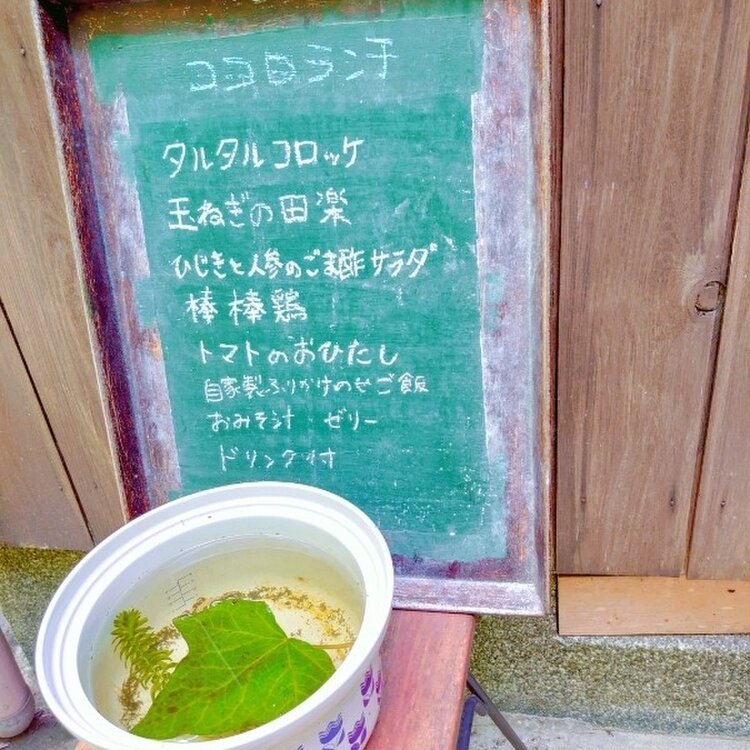 ココロランチ
タルタルコロッケ
玉ねぎの田楽
ひじきと人参のごま酢サラダ
棒棒鶏
トマトのおひたし
自家製ふりかけのせご飯
おみそ汁 ゼリー
ドリンク付